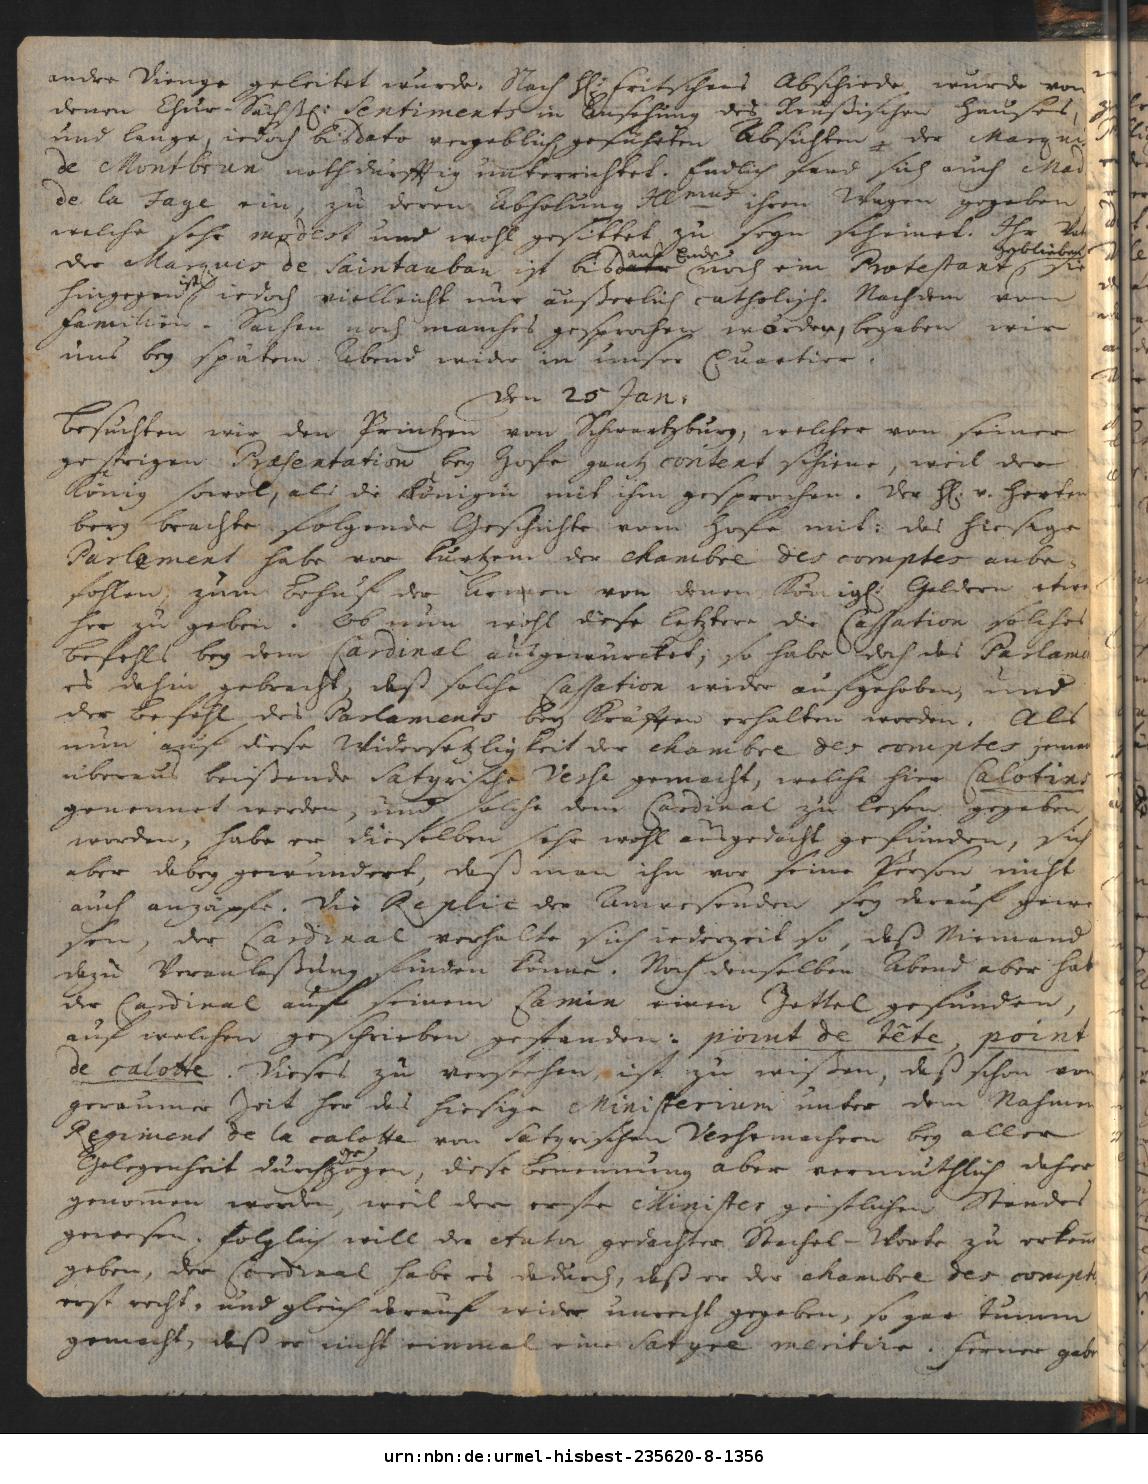 andre Dienge geleitet wurde. Nach H. Fritschens Abschiede wurde von
denen Chur-Sächß: Sentiments in Ansehung des Reußischen Hauses,
und lange, iedoch bisdato vergeblich geführten Absichten, der Marquis
de Montbrun nothdürfftig unterrichtet. Endlich fand sich auch Mad
de la Fage ein, zu deren Abholung Ill mus ihren Wagen gegeben
welche sehr modest und wohl gesittet zu seyn scheinet. Ihr
der Marquis de Saintauban ist bis auf Ende noch ein Protestant geblieben, sie
hingegen ist iedoch vielleicht nur äußerlich catholisch. Nachdem von
Familien-Sachen noch manches gesprochen worden, begaben wir
uns bey spätem Abend wider in unser Quartier.
den 25 Jan:
Besuchten wir den Printzen von Schwartzburg, welcher von seiner
gestrigen Præsentation bey Hofe gantz content schiene, weil der
König sowol, als die Königin mit ihm gesprochen. Der H. v. Herten
berg brachte folgende Geschichte vom Hofe mit: das hiesige
Parlament habe vor kurtzem der chambre des comptes anbe-
fohlen, zum Behuf der Armen von denen Königl: Geldern etwas
her zu geben. Ob nun wohl diese letztere die Cassation solches
Befehls bey dem Cardinal ausgewürcket; so habe doch das Parlament
es dahin gebracht, daß solche Cassation wider aufgehoben, und
der Befehl des Parlaments bey Kräfften erhalten worden. Als
nun auf diese Widersetzligkeit der chambre des comptes jemand
überaus beißende Satyrische Verse gemacht, welche hier Calotins
genennet werden, und solche dem Cardinal zu lesen gegeben
worden, habe er dieselben sehr wohl ausgedacht gefunden, sich
aber dabey gewundert, daß man ihn vor seine Person nicht
auch anzäpfe. Die Replic der Anwesenden sey darauf gewe
sen, der Cardinal verhalte sich iederzeit so, daß Niemand
dazu Veranlaßung finden könne. Noch denselben Abend aber hat
der Cardinal auf seinem Camin einen Zettel gefunden,
auf welchen geschrieben gestanden: point de tête, point
de calotte. Dieses zu verstehen, ist zu wißen, daß schon von
geraumer Zeit her das hiesige Ministerium unter dem Nahmen
Regiment de la calotte von Satyrischen Versemachern bey aller
Gelegenheit durchgezogen, diese Benennung aber vermuthlich daher
genommen worden, weil der erste Minister geistlichen Standes
gewesen. Folglich will der Autor gedachter Stachel-Worte zu erkenn
geben, der Cardinal habe es dadurch, daß er der chambre des compt
erst recht, und gleich darauf wider unrecht gegeben, so gar dumm
gemacht, daß er nicht einmal eine Satyre meritire. Ferner gab
urn:nbn:de:urmel-hisbest-235620-8-1356